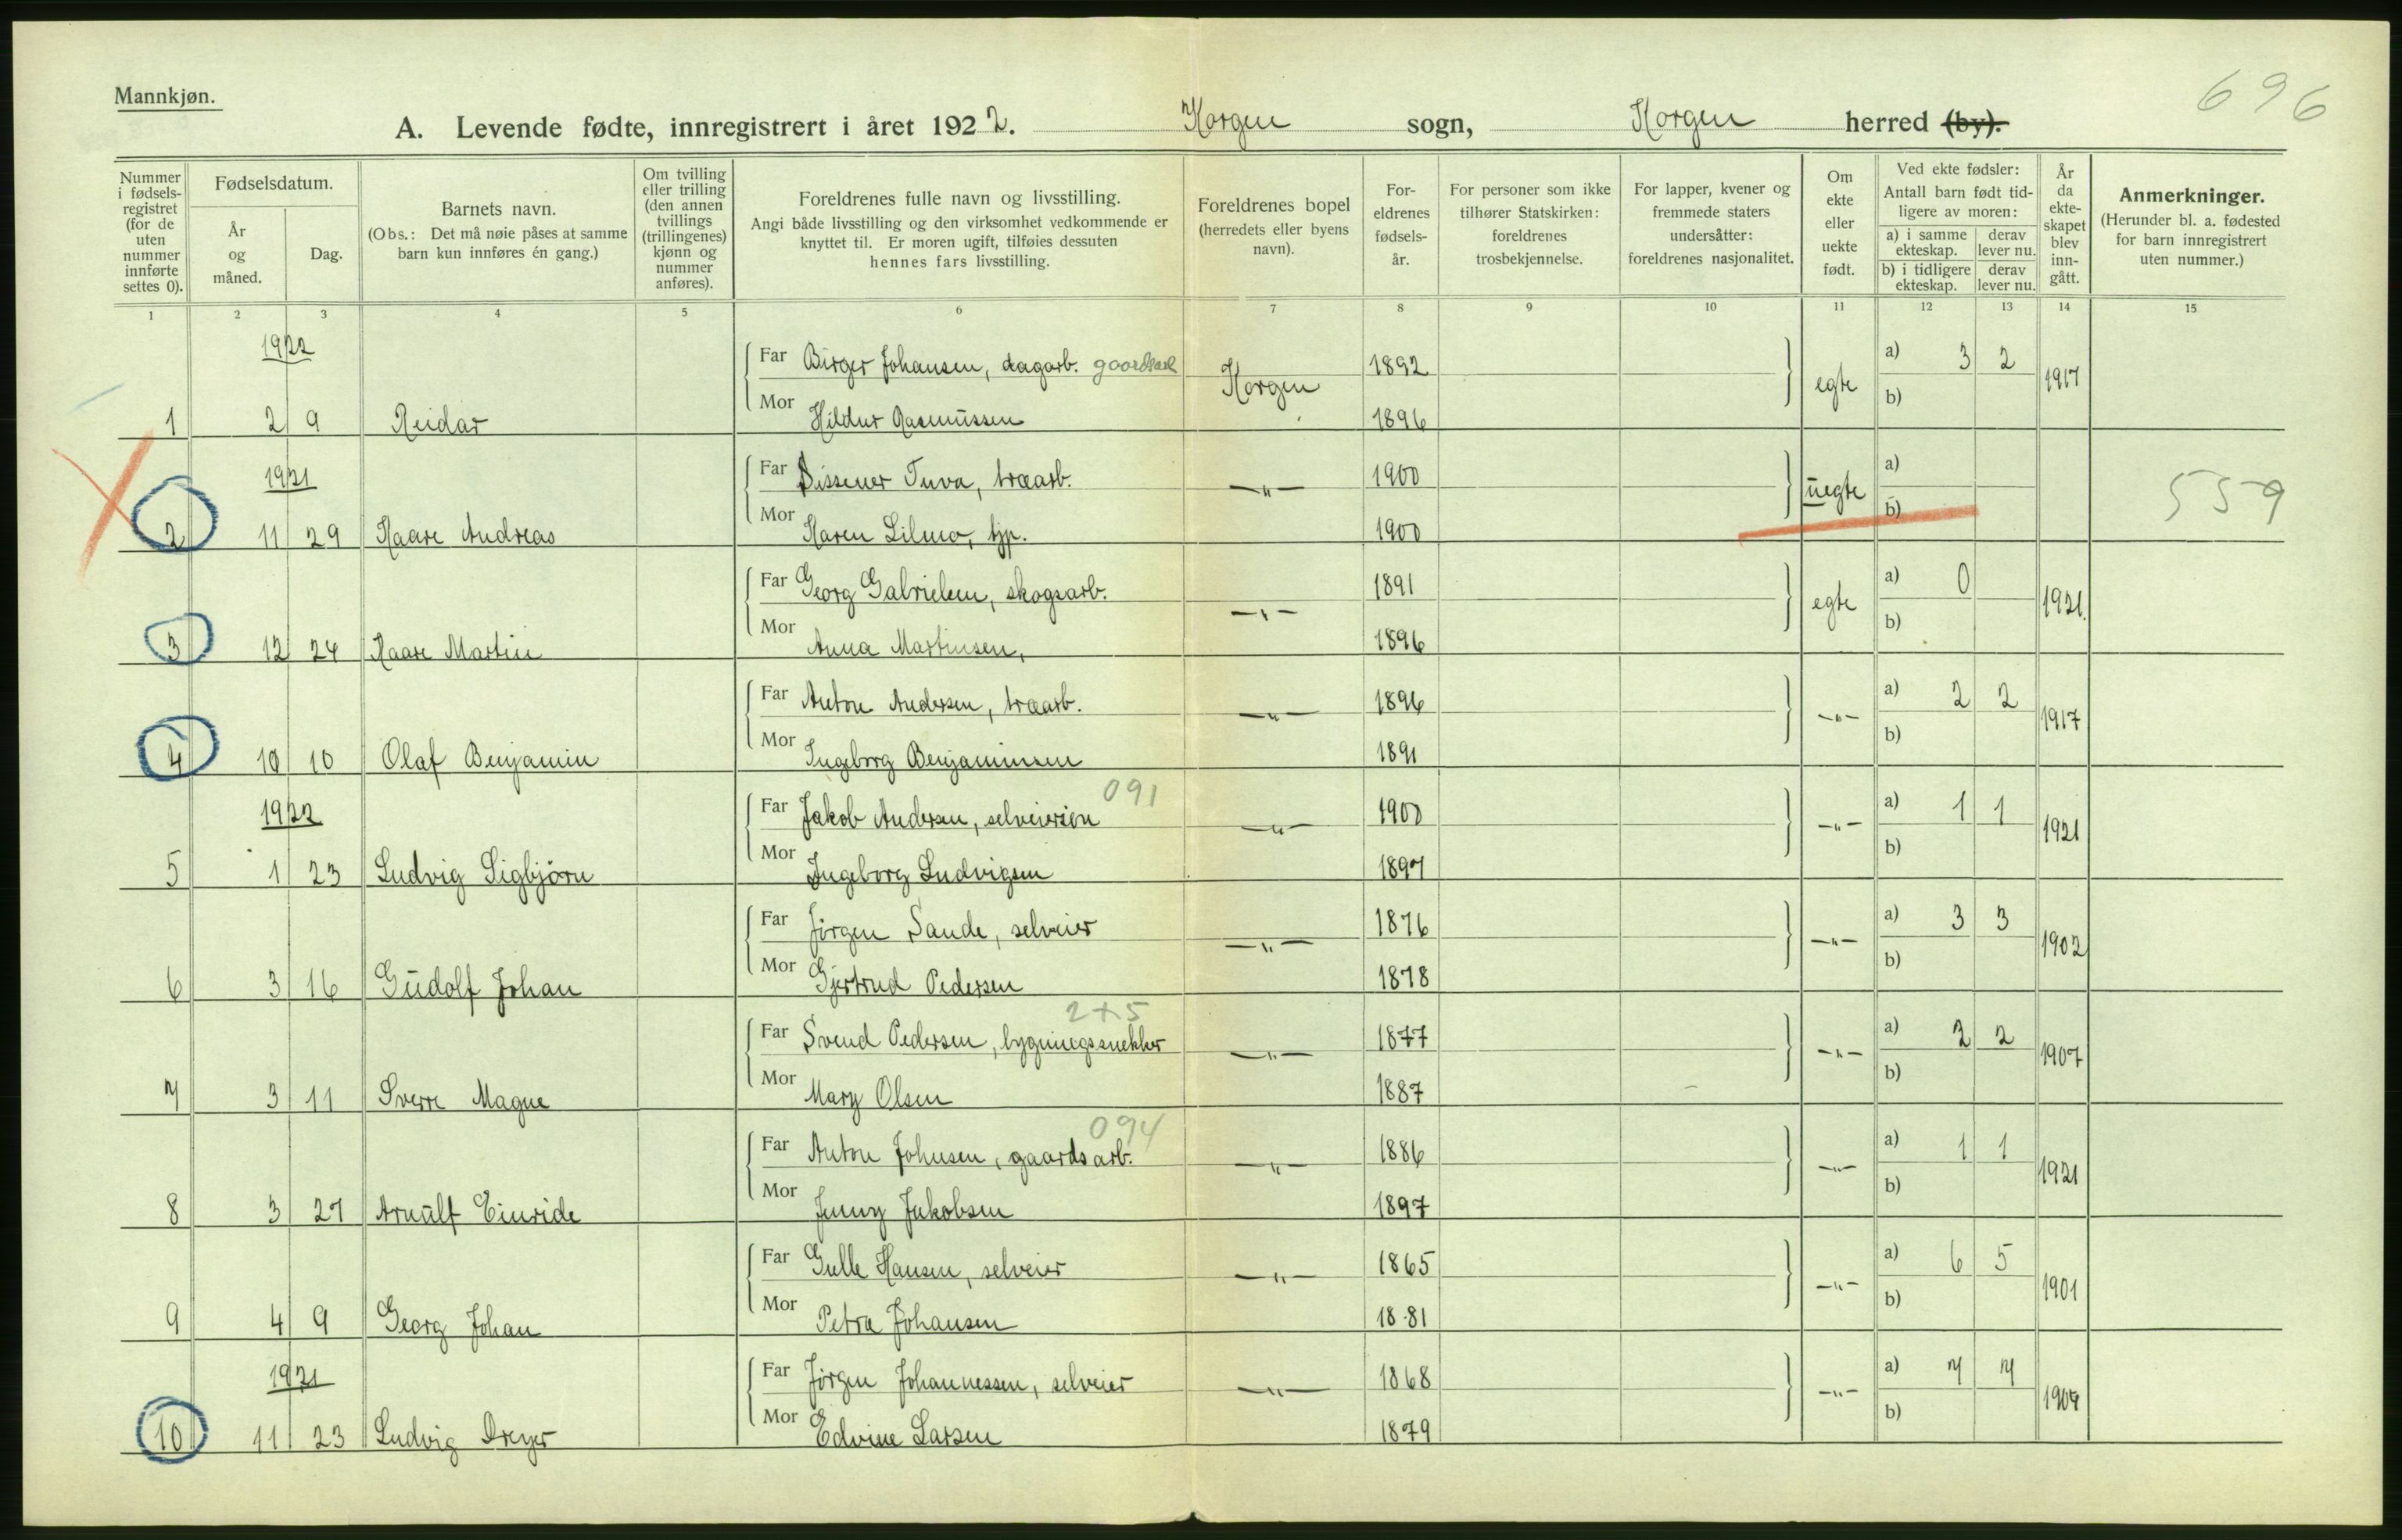 696
Mannkjøn.
A. Levende fødte, innregistrert i året 1922. Korgen sogn, Korgen herred (by).
Nummer i fødselsregistret (for de uten nummer innførte settes 0).
Fødselsdatum.
År og måned.
Dag.
Barnets navn.
(Obs.: Det må nøie påses at samme barn kun innføres én gang.)
Om tvilling eller trilling (den annen tvillings (trillingenes) kjønn og nummer anføres).
Foreldrenes fulle navn og livsstilling.
Angi både livsstilling og den virksomhet vedkommende er knyttet til. Er moren ugift, tilføies dessuten hennes fars livsstilling.
Foreldrenes bopel (herredets eller byens navn).
Foreldrenes fødselsår.
For personer som ikke tilhører Statskirken: foreldrenes trosbekjennelse.
For lapper, kvener og fremmede staters undersåtter: foreldrenes nasjonalitet.
Om ekte eller uekte født.
Ved ekte fødsler:
Antall barn født tidligere av moren:
a) i samme ekteskap. derav lever nu.
b) i tidligere ekteskap. derav lever nu.
År da ekteskapet blev inngått.
Anmerkninger.
(Herunder bl. a. fødested for barn innregistrert uten nummer.)
1 2 3 4 5 6 7 8 9 10 11 12 13 14 15
1922
Far Birger Johansen, dagarb. gaardsarb Korgen 1892 egte a) 3 2 1917
1 2 9 Reidar Mor Hildur Rasmussen 1896 b)
1921
Far Dissener Tuva, træarb. —"— 1900 uegte a) 559
2 11 29 Kaare Andreas Mor Karen Lilmo, tjp. 1900 b)
Far Georg Gabrielsen, skogsarb. —"— 1891 egte a) 0 1921.
3 12 24 Kaare Martin Mor Anna Martinsen, 1896 b)
Far Anton Andersen, træarb. —"— 1896 —"— a) 2 2 1917
4 10 10 Olaf Benjamin Mor Ingeborg Benjaminsen 1891 b)
1922 091
Far Jakob Andersen, selveiersön —"— 1900 —"— a) 1 1 1921
5 1 23 Ludvig Sigbjörn Mor Ingeborg Ludvigsen 1897 b)
Far Jörgen Sande, selveier —"— 1876 —"— a) 3 3 1902
6 3 16 Gudolf Johan Mor Gjertrud Pedersen 1878 b)
2+5
Far Svend Pedersen, bygningssnekker —"— 1877 —"— a) 2 2 1907
7 3 11 Sverre Magne Mor Mary Olsen 1887 b)
094
Far Anton Johnsen, gaardsarb. —"— 1886 —"— a) 1 1 1921
8 3 27 Arnulf Einride Mor Jenny Jakobsen 1897 b)
Far Gulle Hansen, selveier —"— 1865 —"— a) 6 5 1901
9 4 9 Georg Johan Mor Petra Johansen 1881 b)
1921
Far Jörgen Johannessen, selveier —"— 1868 —"— a) 7 7
10 11 23 Ludvig Dreyer Mor Edvine Larsen 1879 b)